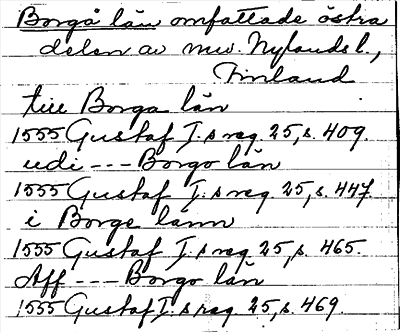 Borgå län omfattade östra
delen av nuv. Nylands l.,
Finland
till Borga län
1555 Gustaf I:s reg. 25, s. 409.
udi --- Borgo län
1555 Gustaf I:s reg. 25, s. 447.
i Borge länn
1555 Gustaf I:s reg. 25, s. 465.
Aff --- Borgo län
1555 Gustaf I:s reg. 25, s. 469.